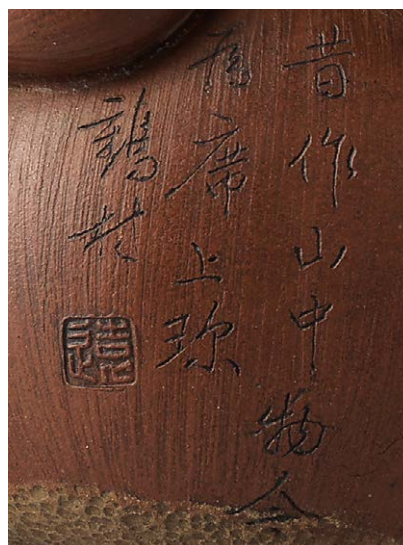 昔作山中物今
為席上珍
鶴村